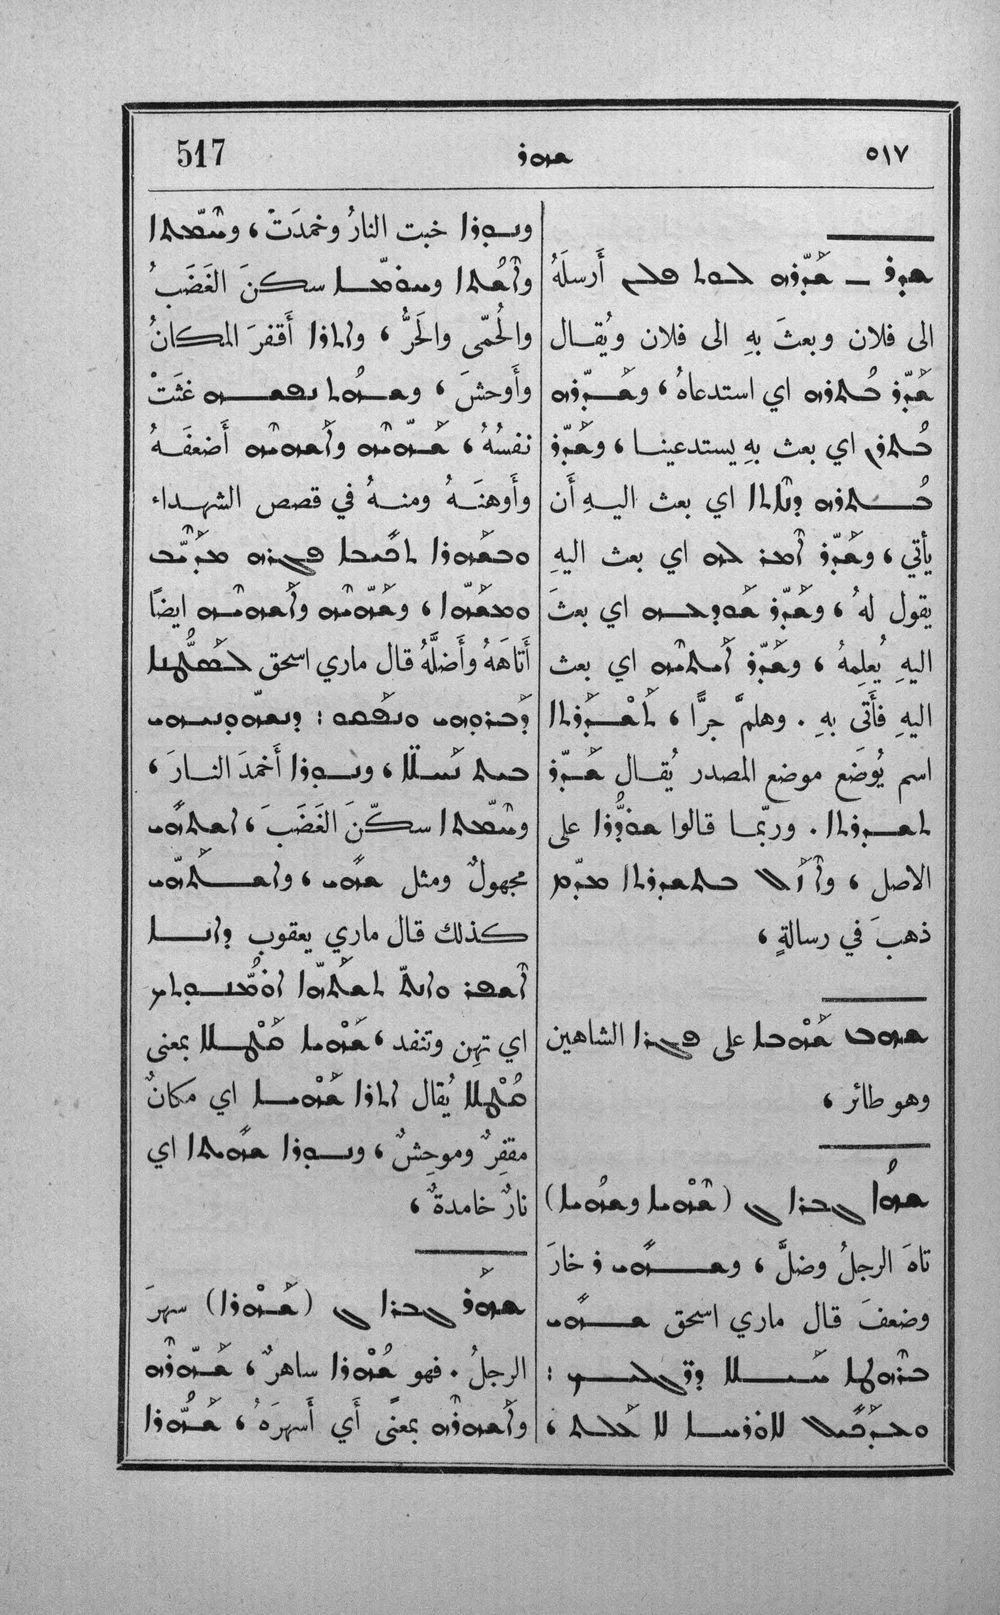 ٥١٧ ܫܗܪ 517
ܫܕܪ ــ ܫܰܕܪܗ ܠܘܬ ܦܠܢ أَرسلَهُ
الى فلان وبعثَ بهِ الى فلان ويُقال
ܫܰܕܪ ܒܳܬܪܗ اي استدعاهُ ، وܫܰܕܪܗ
ܒܳܬܪܢ اي بعث بهِ يستدعينا ، وܫܰܕܪ
ܒܳܬܪܗ ܕܢܐܬܐ اي بعث اليهِ أَن
يأتي ، وܫܰܕܪ ܐܡܪ ܠܗ اي بعث اليهِ
يقول لهُ ، وܫܰܕܪ ܫܰܘܕܥܗ اي بعثَ
اليهِ يُعلِمهُ ، وܫܰܕܪ ܐܰܝܬܝܗ اي بعث
اليهِ فأَتَى بهِ . وهلمَّ جرًّا ، ܬܰܫܕܰܪܬܐ
اسم يُوضَع موضع المصدر يُقال ܫܰܕܪ
ܬܫܕܪܬܐ . وربّما قالوا ܫܘܕܳܪܐ على
الاصل ، وܐܙܰܠ ܒܬܫܕܪܬܐ ܡܕܡ
ذهبَ في رسالةٍ ،
ܫܗܒ ܫܰܗܒܐ على ܦܓܪܐ الشاهين
وهو طائر ،
ܫܗܳܐ ܓܒܪܐ ܓ (ܫܶܗܝܐ وܫܳܗܝܐ)
تاهَ الرجلُ وضلَّ ، وܫܗܺܝ ܪ خارَ
وضعفَ قال ماري اسحق ܫܗܺܝ
ܒܪܗܛܐ ܚܰܝܠܐ ܕܪ̈ܓܠܝܟ :
ܘܥܕܰܟܝܠ ܠܐܘܪܚܐ ܠܐ ܥܰܠܬ ،
وܢܘܪܐ خبت النارُ وخمدَتْ ، وܚܡܬܐ
وܐܫܳܬܐ وܚܘܡܐ سكنَ الغَضَبُ
والحُمّى والحَرُّ ، وܐܬܪܐ أَقفرَ المكانُ
وأَوحشَ ، وܫܗܳܬ ܢܦܫܗ غثَتْ
نفسُهُ ، ܫܰܗܝܗ وܐܰܫܗܝܗ أَضعفَهُ
وأَوهنَهُ ومنهُ في قصص الشهداء
ܘܒܫܰܗܪܐ ܐܡܺܝܢܐ ܦܓܪܗ ܡܕܰܝܒ
ܘܡܫܰܗܐ ، وܫܰܗܝܗ وܐܰܫܗܝܗ ايضًا
أَتاهَهُ وأَضلَّهُ قال ماري اسحق ܠܣܳܛܢܐ
ܕܰܒܪܕܗܝ ܘܢܰܦܩܗ : ܕܢܫܗܝܘܗܝ
ܒܝܬ ܢܰܚ̈ܠܐ ، وܢܘܪܐ أَخمدَ النارَ ،
وܚܡܬܐ سكّنَ الغَضَبَ ، ܐܫܬܗܺܝ
مجهولٌ ومثل ܫܗܺܝ ، وܐܫܬܰܗܝ
كذلك قال ماري يعقوب ܕܐܢܐ
ܐܡܪ ܘܐܢܬ ܬܫܬܰܗܐ
اي تهِن وتنفد ، ܫܰܗܝܐ ܫܰܗܛܠܐ بمعنى
يُقال ܐܬܪܐ ܫܰܗܝܐ اي مكانٌ
مقفِرٌ وموحِشٌ ، وܢܘܪܐ ܫܗܺܝܬܐ اي
نارٌ خامدةٌ ،
ܫܗܰܪ ܓܒܪܐ ܓ (ܫܰܗܪܐ) سهرَ
الرجلُ . فهو ܫܳܗܪܐ ساهرٌ ، ܫܰܗܪܗ
وܐܰܫܗܪܗ بمعنًى أَي أَسهرَهُ ، ܫܰܗܳܪܐ